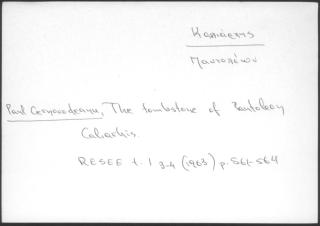 Καλλιάρχης
Παντολέων
Paul Cernovodeanu, The tombstone of Pantoleon
Caliarhis.
RESEE t. I 3-4 (1963) p. 561-564